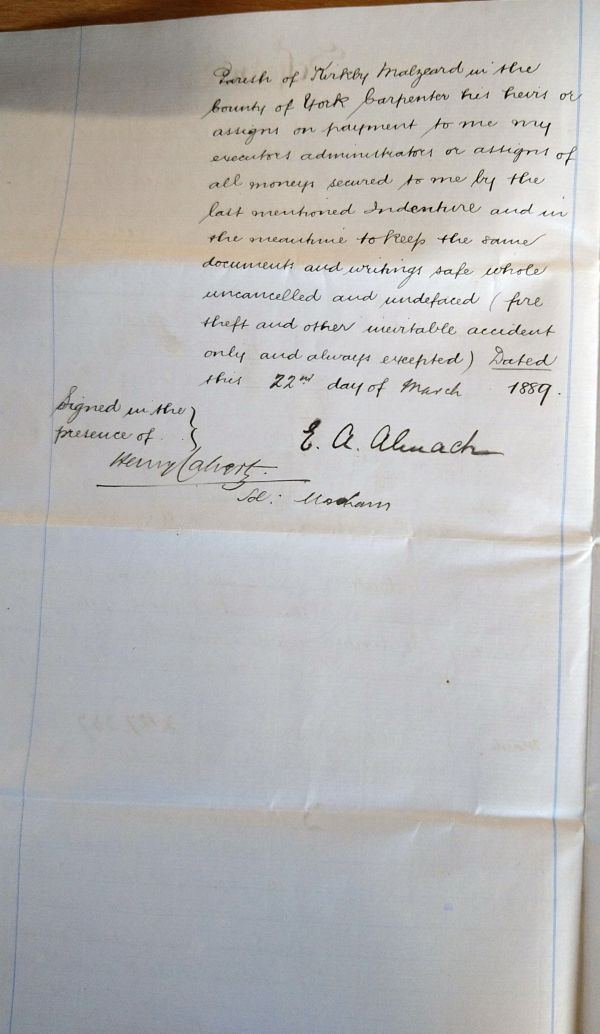 Parish of Kirkby Malzeard in the
County of York Carpenter his heirs or
assigns on payment to me my
executors administrators or assigns of
all moneys secured to me by the
last mentioned Indenture and in
the meantime to keep the same
documents and writings safe whole
uncancelled and undefaced (fire
theft and other inevitable accident
only and always excepted) Dated
this 22nd day of March 1889.
Signed in the
presence of
E. A. Almack
Henry Calvert.
Sol: Masham